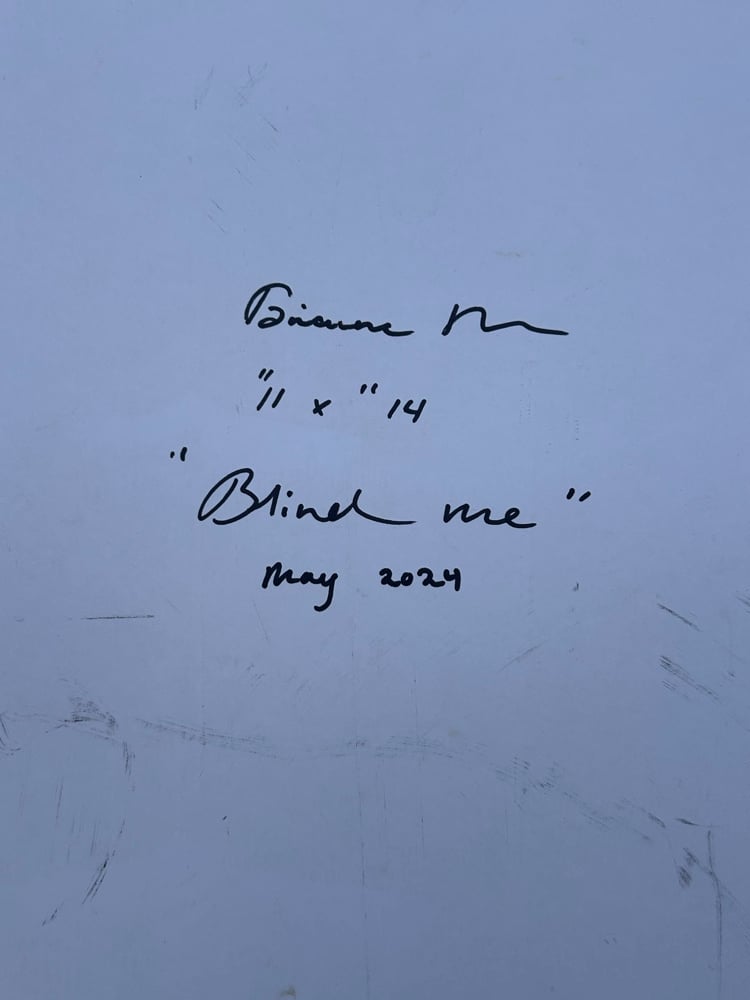 "11 x "14
"Blind me"
May 2024